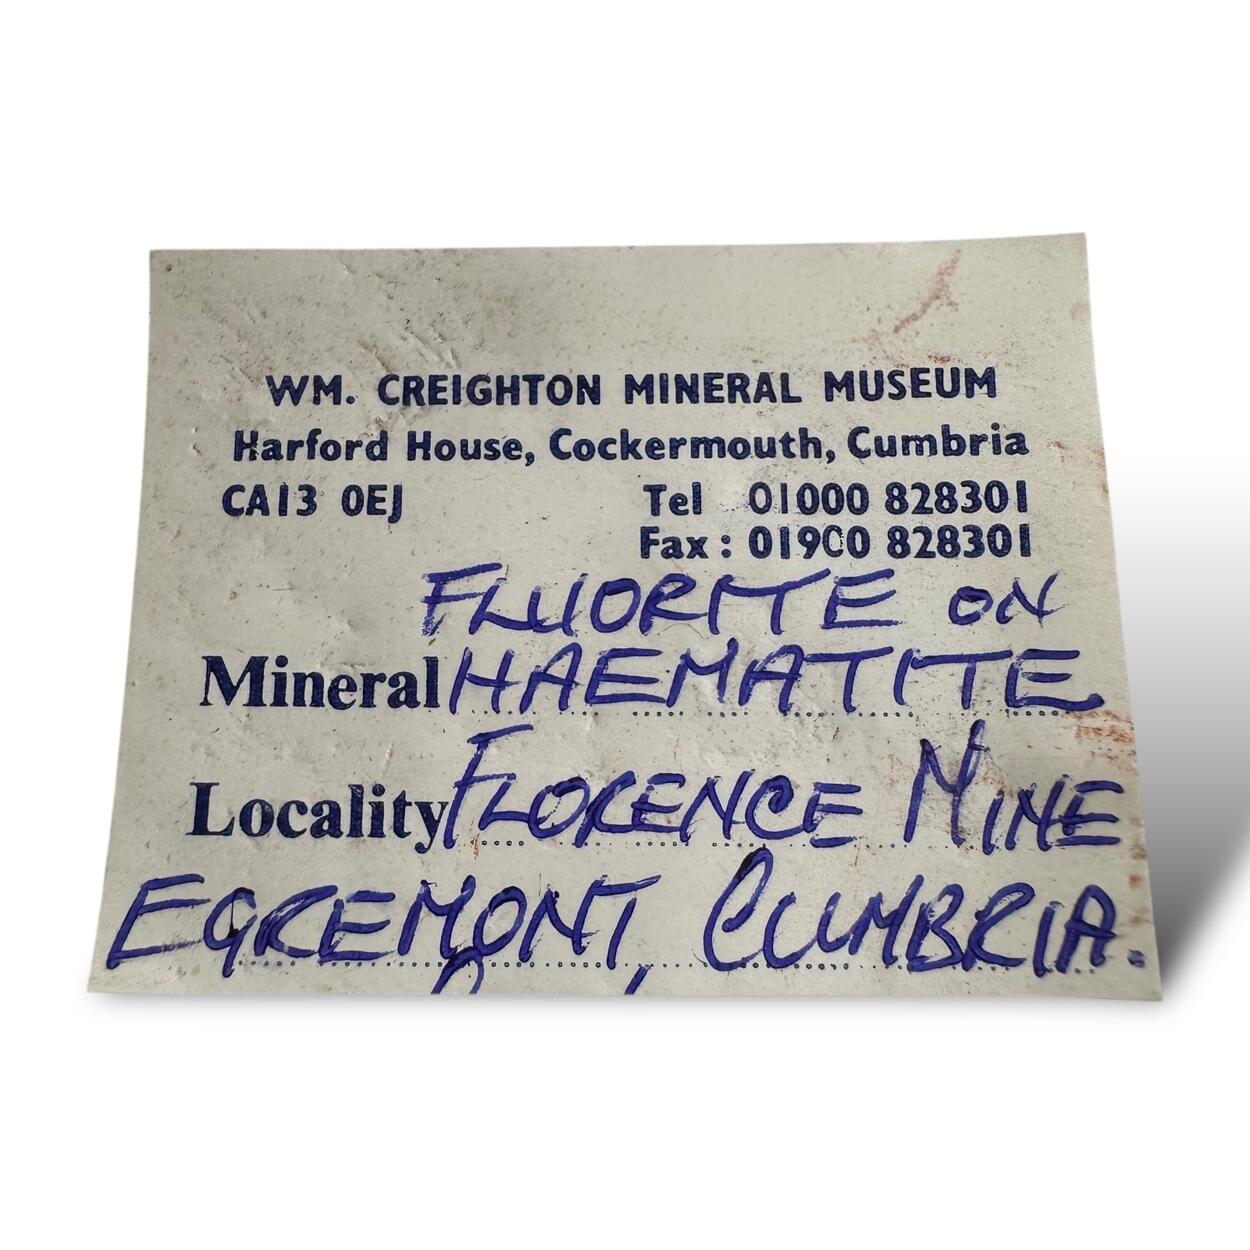 WM. CREIGHTON MINERAL MUSEUM
Harford House, Cockermouth, Cumbria
CA13 0EJ Tel 01000 828301
Fax : 01900 828301
FLUORITE ON
Mineral HAEMATITE
Locality FLORENCE MINE
EGREMONT, CUMBRIA.